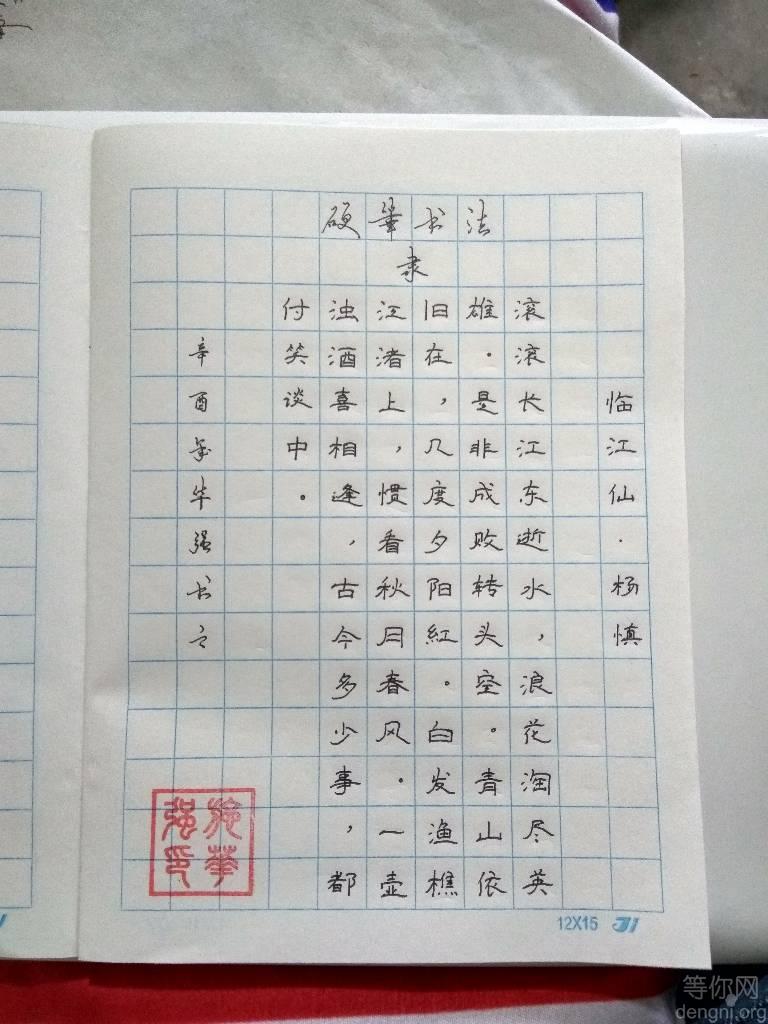 硬筆书法
隶
临江仙·杨慎
滚滚长江东逝水，浪花淘尽英
雄。是非成败转头空。青山依
旧在，几度夕阳紅。白发渔樵
江渚上，惯看秋月春风。一壶
浊酒喜相逢，古今多少事，都
付笑谈中。
辛酉年华强书之
施華强印
12X15
等你网
dengni.org